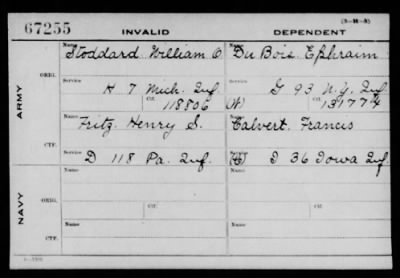 67255
INVALID
DEPENDENT
(3-14-3)
ARMY
ORIG.
Name Stoddard William O
Name Du Bois Ephraim
Service H 7 Mich. Inf
Service G 93 N.Y. Inf
Ctf. 118806
(W) Ctf. 131774
CTF.
Name Fritz Henry S.
Name Calvert Francis
Service D 118 Pa. Inf.
Service (W) I 36 Iowa Inf
NAVY
ORIG.
Name
Name
Service
Ctf.
Service
Ctf.
CTF.
Name
Name
Service
Service